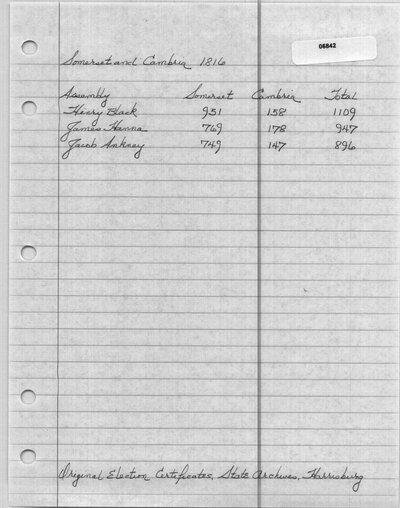 06842
Somerset and Cambria 1816
Assembly Somerset Cambria Total
Henry Black 951 158 1109
James Hanna 769 178 947
Jacob Ankney 749 147 896
Original Election Certificates, State Archives, Harrisburg